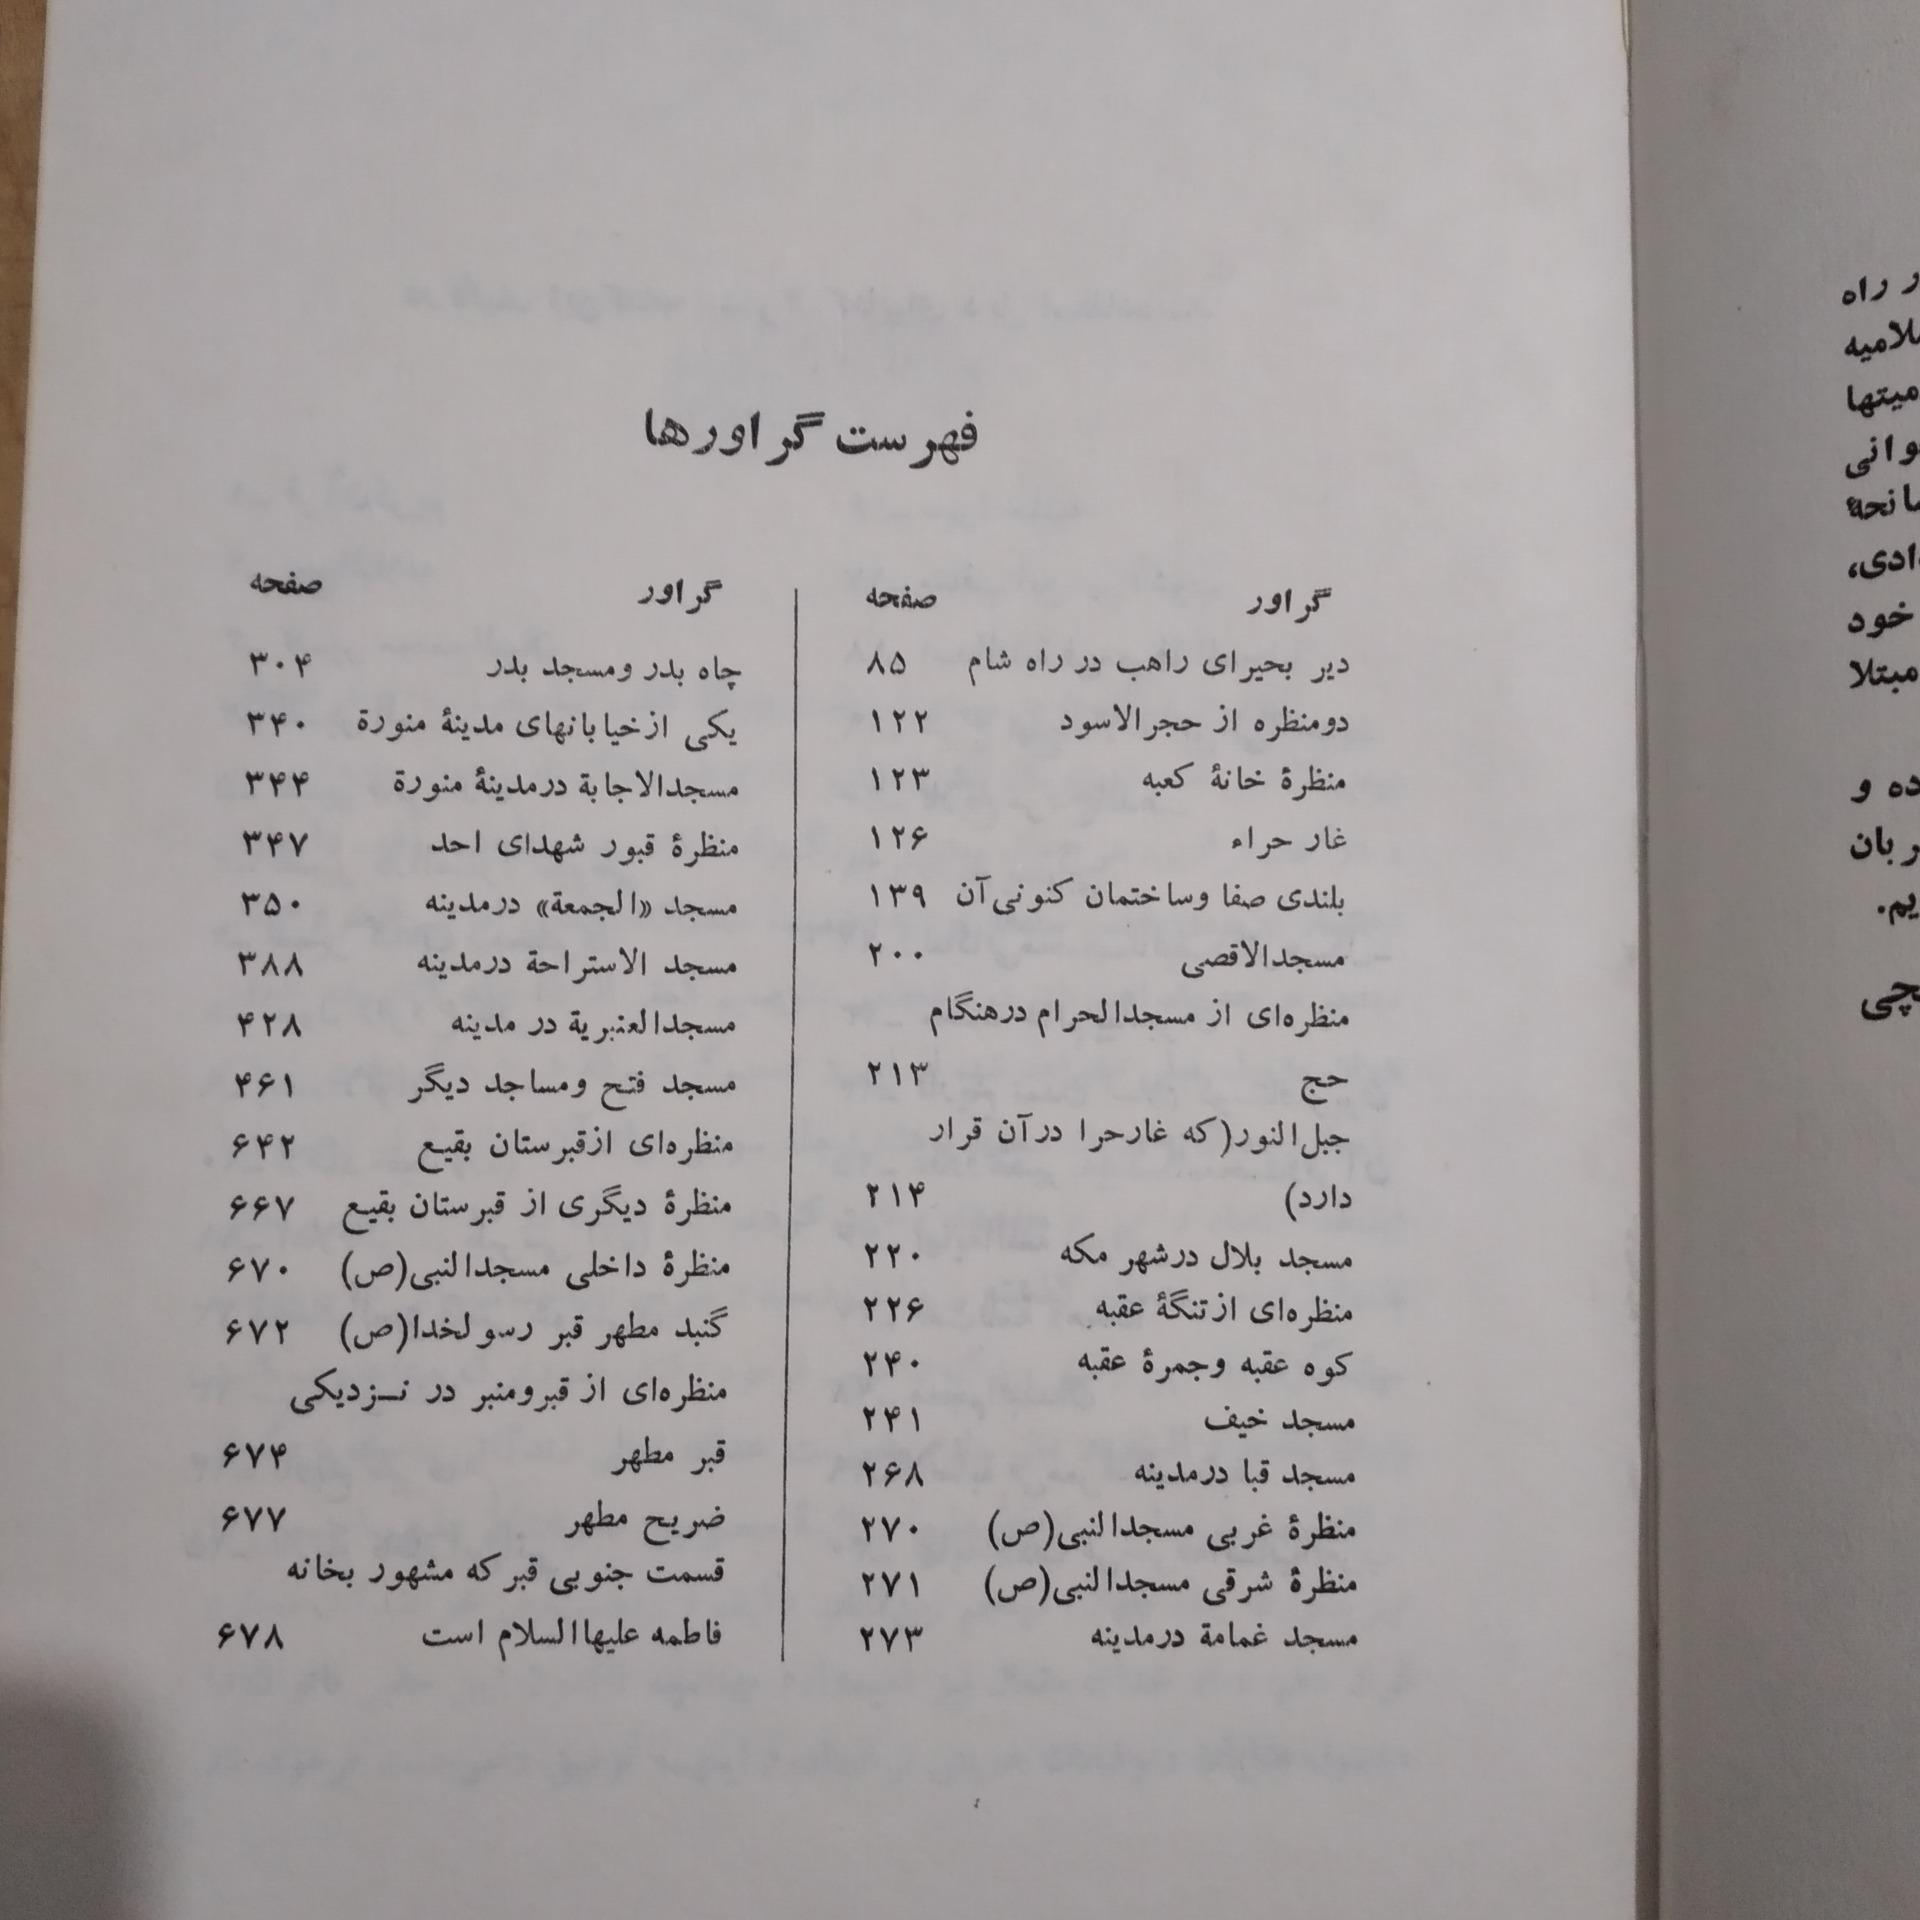 فهرست گراورها
گراور صفحه
دیر بحیرای راهب در راه شام ۸۵
دومنظره از حجرالاسود ۱۲۲
منظرهٔ خانهٔ کعبه ۱۲۳
غار حراء ۱۲۶
بلندی صفا وساختمان کنونی‌آن ۱۳۹
مسجدالاقصی ۲۰۰
منظره‌ای از مسجدالحرام درهنگام
حج ۲۱۳
جبل‌النور(که غارحرا درآن قرار
دارد) ۲۱۴
مسجد بلال درشهر مکه ۲۲۰
منظره‌ای ازتنگهٔ عقبه ۲۲۶
کوه عقبه وجمرهٔ عقبه ۲۴۰
مسجد خیف ۲۴۱
مسجد قبا درمدینه ۲۶۸
منظرهٔ غربی مسجدالنبی(ص) ۲۷۰
منظرهٔ شرقی مسجدالنبی(ص) ۲۷۱
مسجد غمامة درمدینه ۲۷۳
گراور صفحه
چاه بدر ومسجد بدر ۳۰۴
یکی ازخیابانهای مدینهٔ منورة ۳۴۰
مسجدالاجابة درمدینهٔ منورة ۳۴۴
منظرهٔ قبور شهدای احد ۳۴۷
مسجد «الجمعة» درمدینه ۳۵۰
مسجد الاستراحة درمدینه ۳۸۸
مسجدالعنبریة در مدینه ۴۲۸
مسجد فتح ومساجد دیگر ۴۶۱
منظره‌ای ازقبرستان بقیع ۶۴۲
منظرهٔ دیگری از قبرستان بقیع ۶۶۷
منظرهٔ داخلی مسجدالنبی(ص) ۶۷۰
گنبد مطهر قبر رسولخدا(ص) ۶۷۲
منظره‌ای از قبرومنبر در نـزدیکی
قبر مطهر ۶۷۴
ضریح مطهر ۶۷۷
قسمت جنوبی قبرکه مشهور بخانه
فاطمه علیهاالسلام است ۶۷۸
ر راه
میتها
خود
مبتلا
ده و
یم.